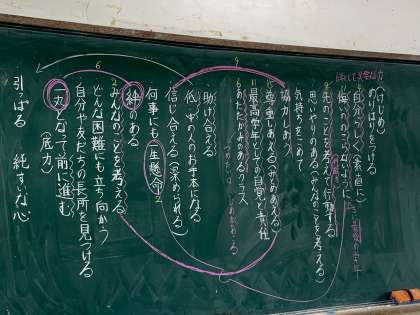 (けじめ)
めりはりをつける
自分らしく(素直に)
悔いののこらないように
先のことを考えて行動する
思いやりのある(みんなのことを考える)
気持ちをこめて
協力しあう
尊重しあえる(みとめあえる)
最高学年としての自覚と責任
あたたかみのあるクラス
助け合える
低・中の人のお手本になる
信じ合える(深められる)
何事にも一生懸命
絆のある
みんなのことを考える
どんな困難にも立ち向かう
自分や友だちの長所を見つける
一丸となって前に進む
(底力)
引っぱる 純すいな心
6
9
2